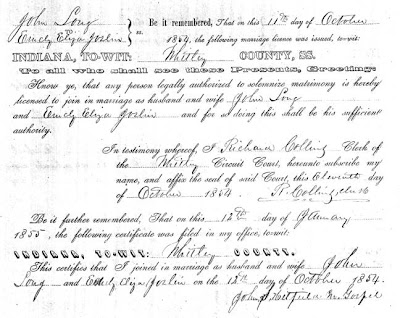 John Long
to
Emely Eliza Joslin } ss. Be it remembered, That on this 11th day of October
1854, the following marriage licence was issued, to-wit:
INDIANA, TO-WIT: Whitley COUNTY, SS.
To all who shall see these Presents, Greeting:
Know ye, that any person legally authorized to solemnize matrimony is hereby
licensed to join in marriage as husband and wife John Long
and Emely Eliza Joslin and for so doing this shall be his sufficient
authority.
In testimony whereof, I Richard Collins Clerk of
the Whitley Circuit Court, hereunto subscribe my
name, and affix the seal of said Court, this Eleventh day
of October 1854. R. Collins, Clerk
Be it further remembered, That on this 12th day of January
1855, the following certificate was filed in my office, to-wit:
INDIANA, TO-WIT: Whitley COUNTY.
This certifies that I joined in marriage as husband and wife John
Long and Emely Eliza Joslin on the 12th day of October 1854.
John Hatfield